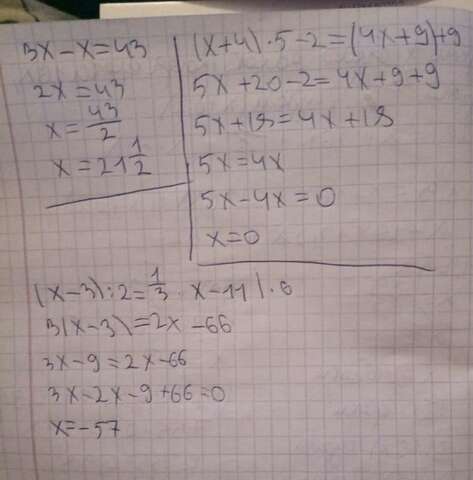 3x-x=43
2x=43
x=43/2
x=21 1/2
(x+4)·5-2=(4x+9)+9
5x+20-2=4x+9+9
5x+18=4x+18
5x=4x
5x-4x=0
x=0
(x-3):2=1/3·x-11|·6
3(x-3)=2x-66
3x-9=2x-66
3x-2x-9+66=0
x=-57